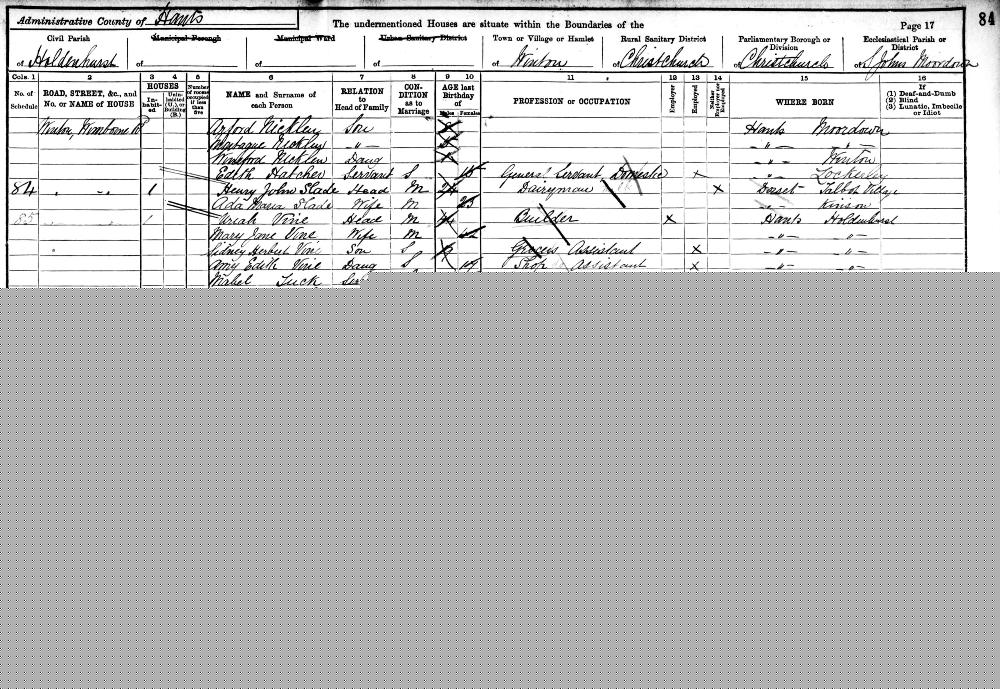 Administrative County of Hants The undermentioned Houses are situate within the Boundaries of the Page 17 84
Civil Parish Municipal Borough Municipal Ward Urban Sanitary District Town or Village or Hamlet Rural Sanitary District Parliamentary Borough or Division Ecclesiastical Parish or District
of Holdenhurst of of of of Winton of Christchurch of Christchurch of St Johns Moordown
Cols. 1 2 3 4 5 6 7 8 9 10 11 12 13 14 15 16
No. of Schedule ROAD, STREET, &c., and No. or NAME of HOUSE HOUSES Inhabited Uninhabited (U.), or Building (B.) Number of rooms occupied if less than five NAME and Surname of each Person RELATION to Head of Family CONDITION as to Marriage AGE last Birthday of Males Females PROFESSION or OCCUPATION Employer Employed Neither Employer nor Employed WHERE BORN If (1) Deaf-and-Dumb (2) Blind (3) Lunatic, Imbecile or Idiot
Winton, Wimborne Rd Arford Nickley Son Hants Moordown
Montague Nickley " " "
Winifred Nicklen Daug " Winton
Edith Hatcher Servant S 18 General Servant Domestic x " Lockerley
84 " " 1 Henry John Slade Head M Dairyman x Dorset Talbot Village
Ada Maria Slade Wife M 23 " Kinson
85 " 1 Uriah Vine Head M Builder x Hants Holdenhurst
Mary Jane Vine Wife M " "
Sidney Herbert Vine Son S Grocers Assistant x " "
Amy Edith Vine Daug S 19 Shop Assistant x " "
Mabel Tuck